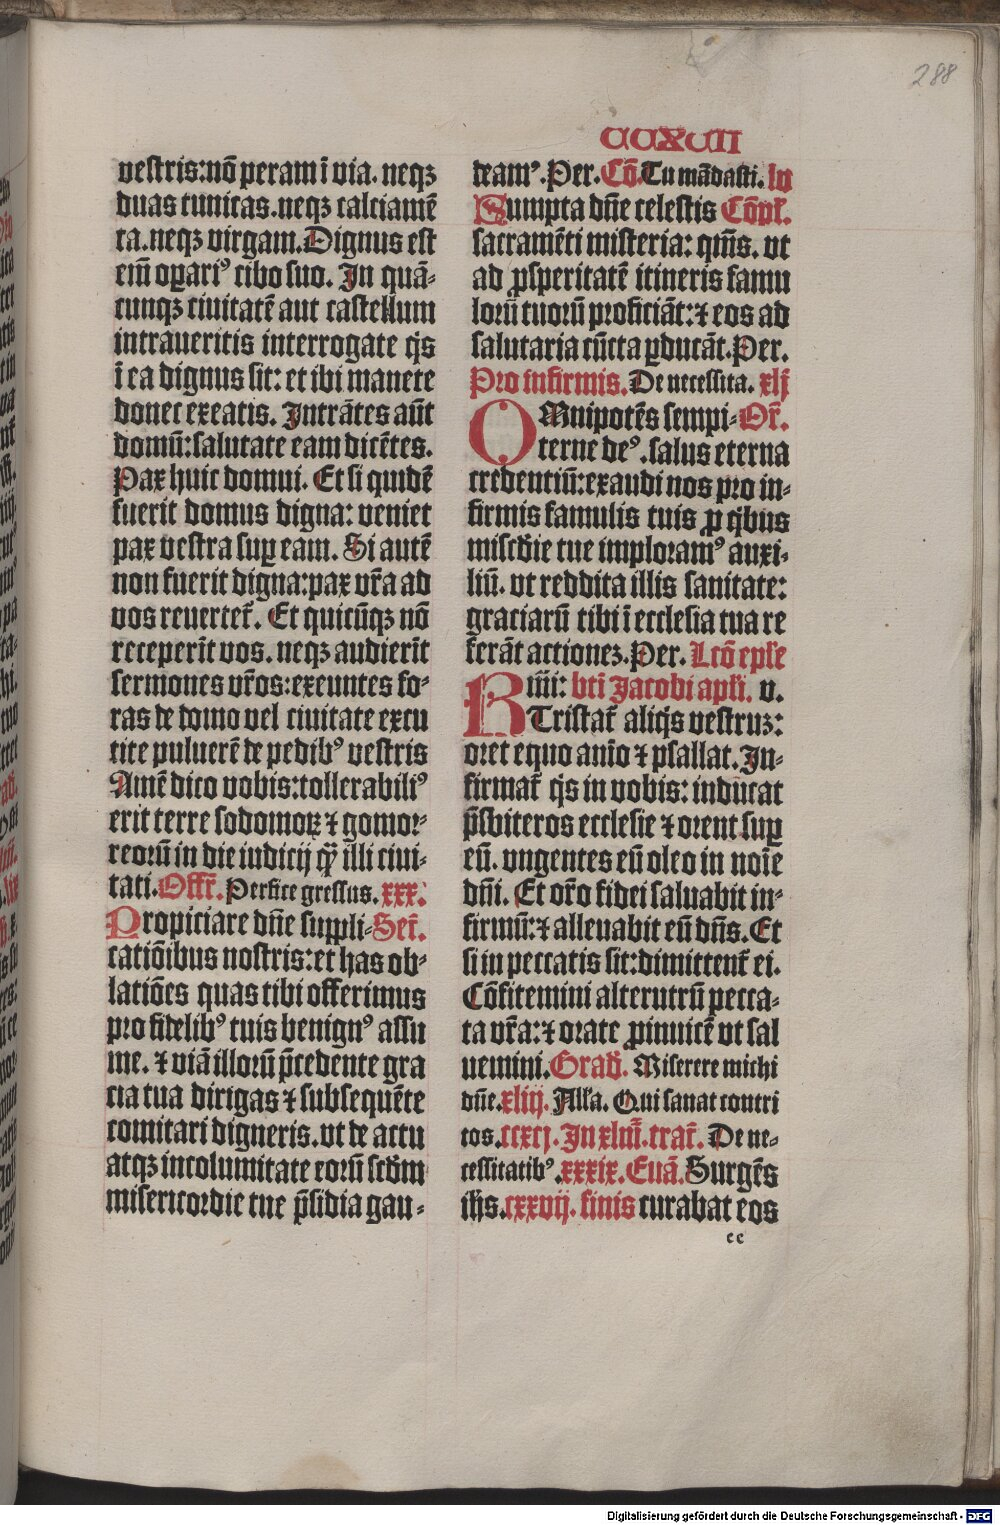 288
CCXCVII
vestris:nō peram ī via. neqꝫ
duas tunicas.neqꝫ calciamē
ta.neqꝫ virgam.Dignus est
em̄ oꝑariꝰ cibo suo. In quā-
cunqꝫ ciuitatē aut castellum
intraueritis interrogate q̇s
ī ea dignus sit: et ibi manete
donec exeatis. Intrātes aūt
domū:salutate eam dicētes.
Pax huic domui. Et si quidē
fuerit domus digna: veniet
pax vestra suꝑ eam. Si autē
non fuerit digna:pax vr̄a ad
vos reuertet᷑. Et quicūqꝫ nō
receperīt vos. neqꝫ audierīt
sermones vr̄os:exeuntes fo-
ras de domo vel ciuitate excu
tite puluerē de pedibꝰ vestris
Amē dico vobis:tollerabiliꝰ
erit terre sodomoꝝ ⁊ gomor-
reorū in die iudicij qꝫ̄ illi ciui-
tati. Offr̄. Perfice gressus. xxx.
Propiciare dn̄e suppli- Secr̄.
catiōibus nostris:et has ob-
latiōes quas tibi offerimus
pro fidelibꝰ tuis benignꝰ assu
me. ⁊ viā illorū p̄cedente gra
cia tua dirigas ⁊ subsequēte
comitari digneris.vt de actu
atqꝫ incolumitate eorū scd̄m
misericordie tue p̄sidia gau-
deamꝰ.Per. Cō. Tu mādasti. lv
Sumpta dn̄e celestis Cōpl̄.
sacramēti misteria: qm̄s. vt
ad ꝓsperitatē itineris famu
lorū tuorū proficiāt:⁊ eos ad
salutaria cūcta ꝑducāt.Per.
Pro infirmis. De necessita. xlj
OMnipotēs sempi- Or̄.
terne deꝰ.salus eterna
credentiū:exaudi nos pro in-
firmis famulis tuis ꝓ q̇bus
miscd̄ie tue imploramꝰ auxi-
liū. vt reddita illis sanitate:
graciarū tibi ī ecclesia tua re
ferāt actionez.Per. Lcō epl̄e
Rim̄: bt̄i Jacobi apl̄i. v.
Tristat᷑ aliq̇s vestruz:
oret equo anīo ⁊ psallat. In-
firmat᷑ q̇s in vobis: inducat
p̄sbiteros ecclesie ⁊ orent suꝑ
eū. vngentes eū oleo in noīe
dn̄i. Et or̄o fidei saluabit in-
firmū:⁊ alleuabit eū dn̄s. Et
si in peccatis sit:dimittent᷑ ei.
Cōfitemini alterutrū pecca-
ta vr̄a:⁊ orate ꝓinuicē vt sal
uemini. Grad̄. Miserere michi
dn̄e. xliij. All̄a. Qui sanat contri
tos. ccxcj. In xlm̄. trac̄. De ne-
cessitatibꝰ. xxxix. Euā. Surgēs
ih̄s. cxxvij. finis curabat eos
cc
Digitalisierung gefördert durch die Deutsche Forschungsgemeinschaft - DFG